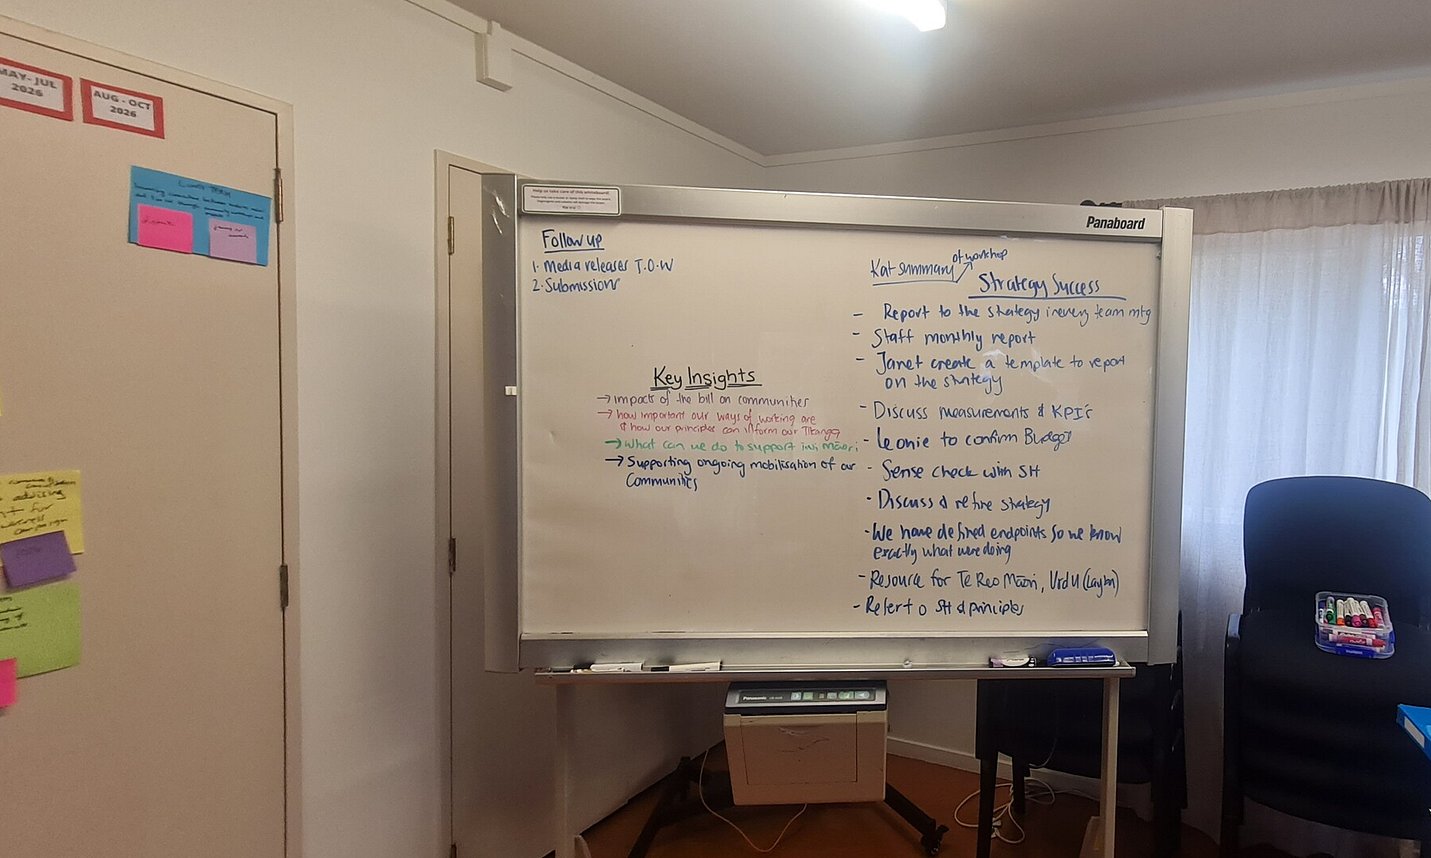 MAY- JUL
2026
AUG - OCT
2026
advising
for
Help us take care of this whiteboard!
Panaboard
Follow up
1. Media releases T.O.W
2. Submissions
Key Insights
→ impacts of the bill on communities
→ how important our ways of working are
& how our principles can inform our Tikanga
→ What can we do to support iwi Māori
→ Supporting ongoing mobilisation of our
Communities
Kat summary of workshop
Strategy Success
- Report to the strategy in every team mtg
- Staff monthly report
- Janet create a template to report
on the strategy
- Discuss measurements & KPI's
- Leonie to confirm Budget
- Sense check with SH
- Discuss & refine strategy
- We have defined endpoints so we know
exactly what were doing
- Resource for Te Reo Māori, Urdu (Layba)
- Refer to SH & principles
Panasonic